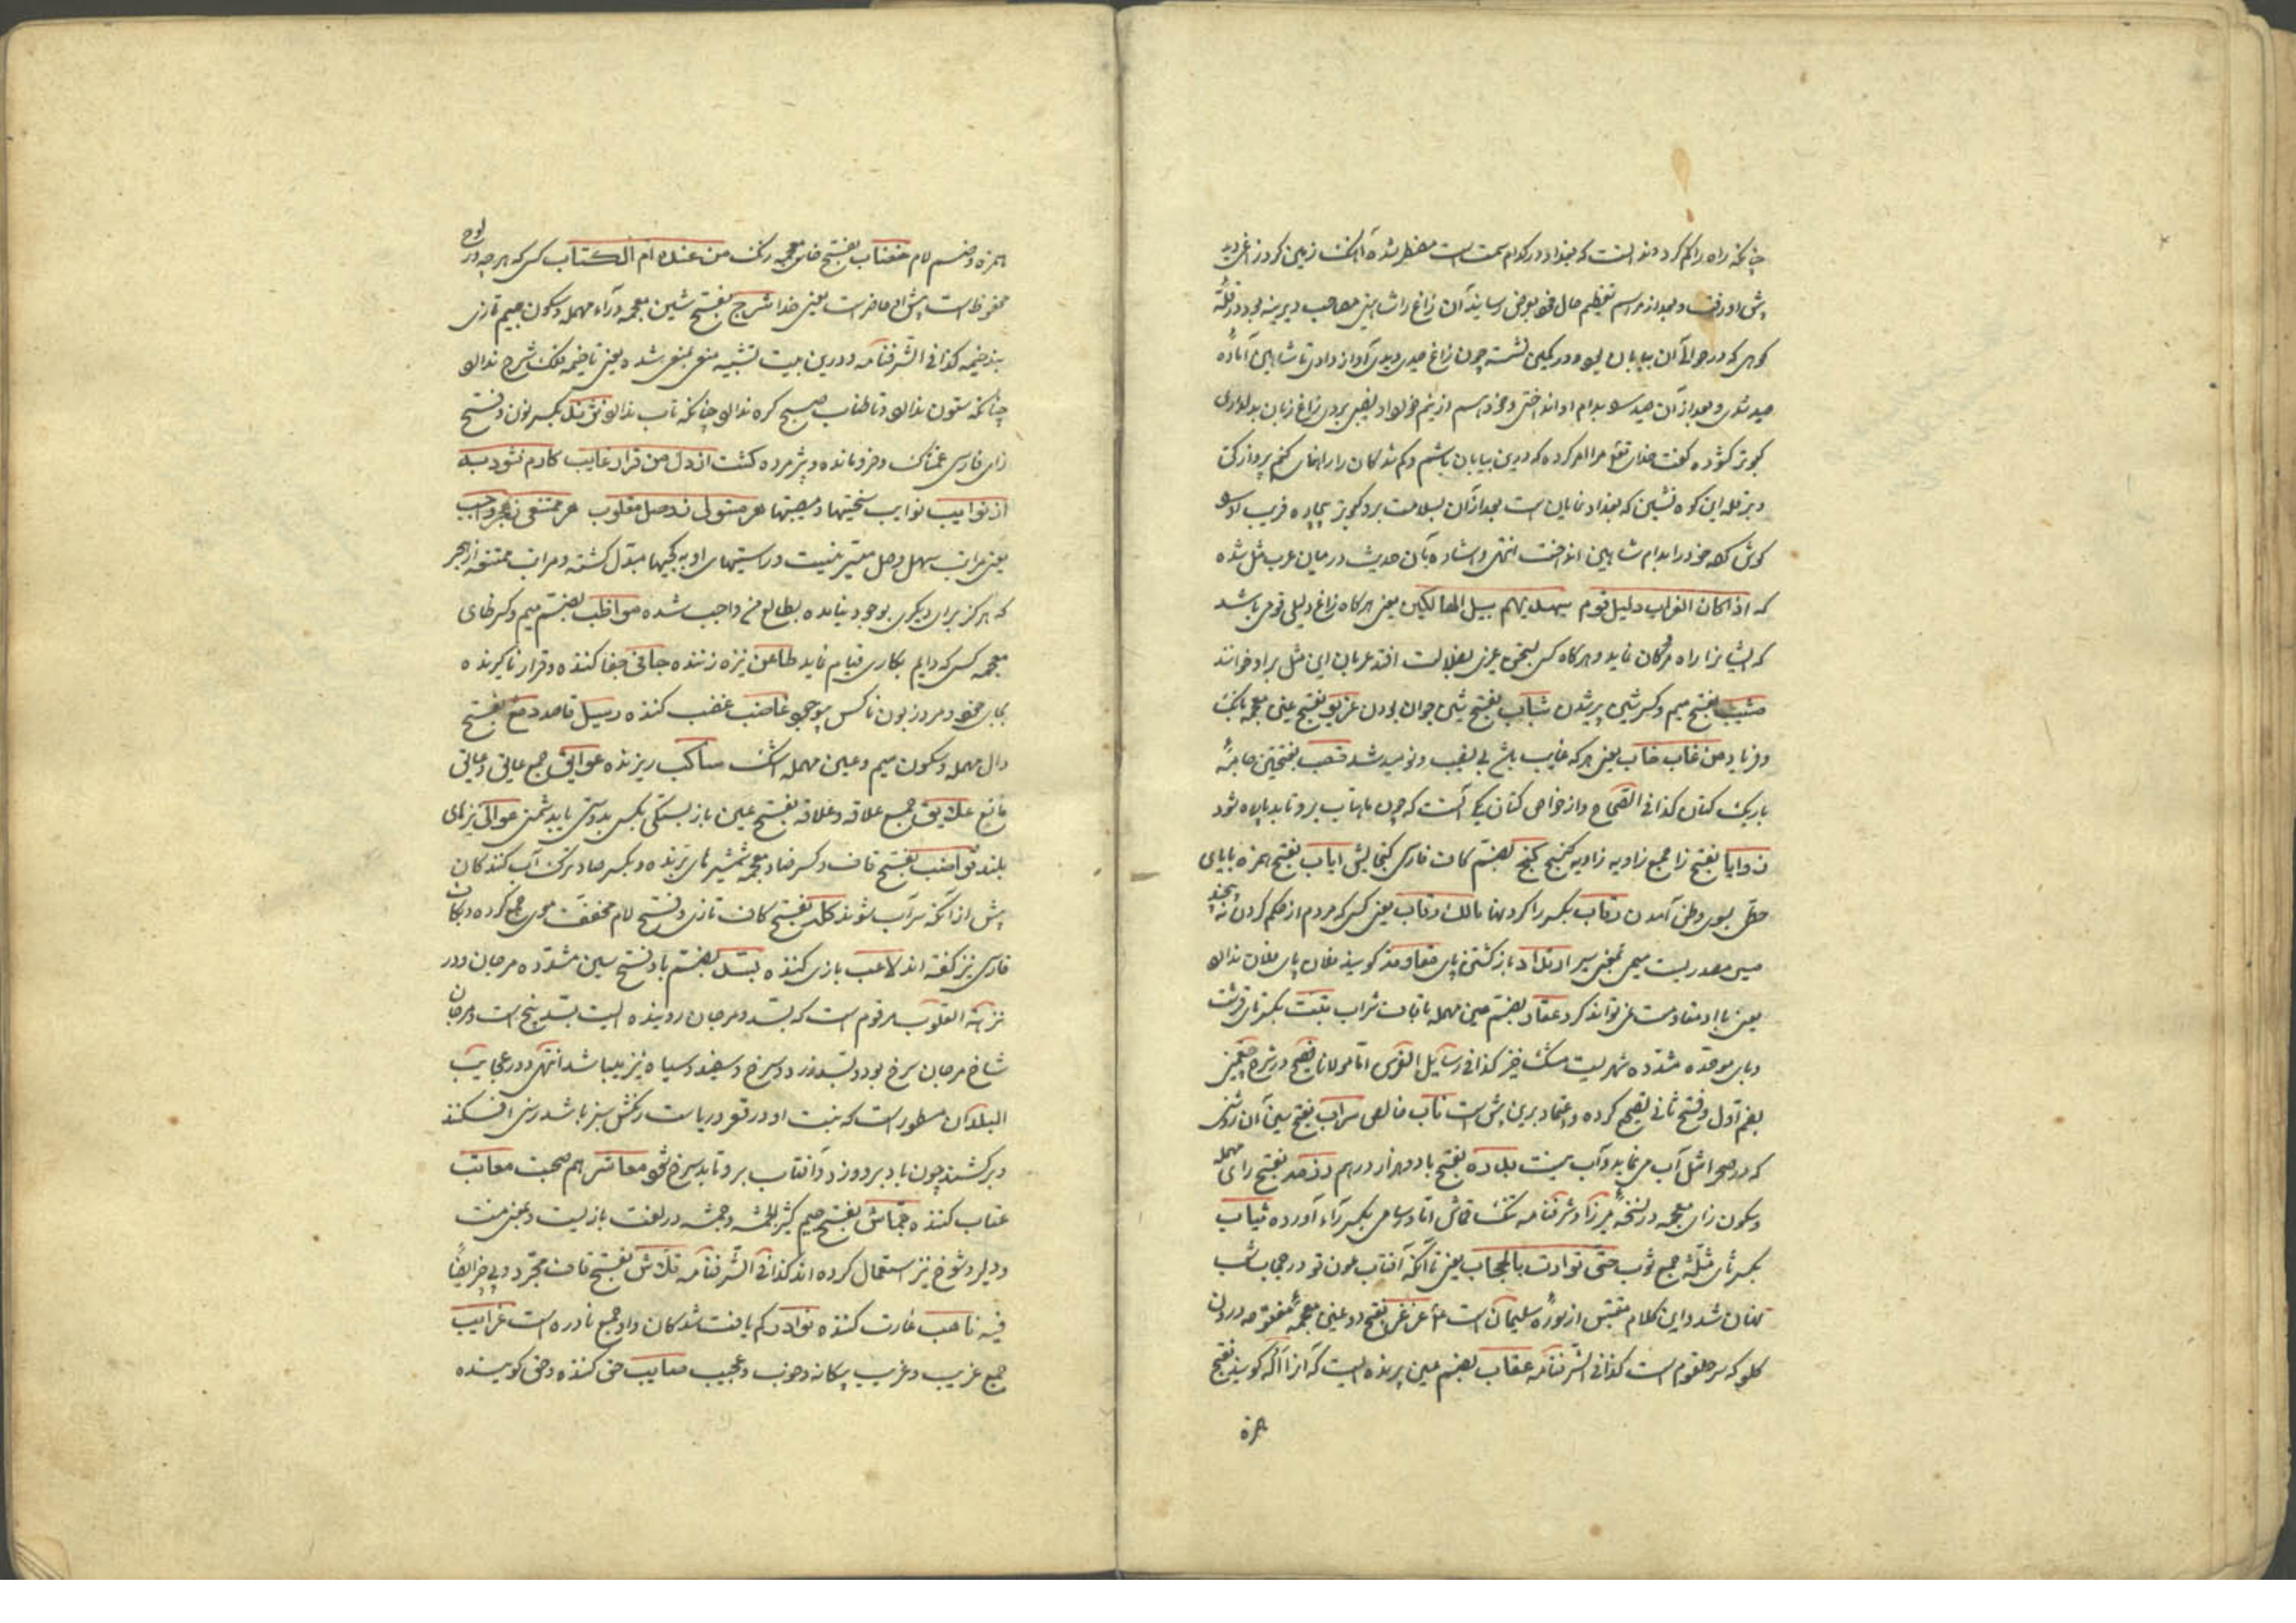 چنانکه راه را گم کرد و ندانست که بغداد در کدام سمت است مضطر شده آهنگ زمین کرد زاغی دید
پیش او رفت و بعد از مراسم تعظیم حال خود بعرض رسانید آن زاغ را شاهینی مصاحب دیرینه بود در قلّهٔ
کوهی که در حوالی آن بیابان بود در کمین نشسته چون زاغ صیدی دیدی آواز دادی تا شاهین آماده
صید شدی و بعد از آن صید را بدام او انداختی و خود هم از پنجه خونخواد نصیبی بردی زاغ زبان بدلداری
کبوتر گشوده گفت خدای تعالی مرا امر کرده که درین بیابان باشم و گم شدگان را راهنمائی کنم پرواز کن
و بر قله این کوه نشین که بغداد نمایان است بعد از آن بسلامت برو کبوتر بیچاره فریب او را
گوش کرده خود را بدام شاهین انداخت انتهی و اشاره بآن حدیث در میان عرب مثل شده
که اذا کان الغراب دلیل قوم سیهدیهم سبیل الهالکین یعنی هرگاه زاغ دلیل قومی باشد
که ایشانرا راه مردگان نماید و هرگاه کسی بسخن عزی بضلالت افتد عربان این مثل برو خوانند
مشیب بفتح میم و کسر شین پیر شدن شباب بفتح شین جوان بودن غریو بفتح غین معجمه بانگ
و فریاد من غاب خاب یعنی هر که غایب باشد بی نصیب و نومید شد قصب بفتحتین جامهٔ
باریک کتان کذا فی الصحاح و از خواص کتان یکی آنست که چون ماهتاب برو تابد پاره شود
زوایا بفتح زا جمع زاویه زاویه کنج کنج بضم کاف فارسی گنجایش ایاب بفتح همزه با یای
حطی بسوی وطن آمدن رقاب بکسر را گردنها مالک رقاب یعنی کسی که مردم از حکم گردن نه پیچند
میسی مصدریست میمی بمعنی سیر ارتداد باز گشتن پای مقاومت گویند فلان پای فلان ندارد
یعنی با او مقاومت نمی تواند کرد عقار بضم عین مهمله با قاف شراب تبت بکسر تای قرشت
و بای موحده مشدده شهریست مشک خیز کذا فی رسایل القوس اما مولانا فصیح در شرح چغمین
بضم اول و فتح ثانی تصحیح کرده و اعتماد برین پیش است ناب خالص سراب بفتح سین آن روشنی
که در صحرا مثل آب می نماید و آب نیست بدره بفتح با ده هزار درهم رزمه بفتح رای مهمله
و سکون زای معجمه در نسخهٔ میرزا و شرفنامه تنگ قماش اما در سامی بکسر راء آورده ثیاب
بکسر ثای مثلثه جمع ثوب حتی توارت بالحجاب یعنی تا آنکه آفتاب چون تو در حجاب شب
نهان شد و این کلام مقتبس از سورهٔ سلیمان است علیه غرغر بفتح دو غین معجمهٔ مفتوحه درون
گلو که سر حلقوم است کذا فی الشرفنامه عقاب بضم عین پرنده ایست که آنرا آله گویند بفتح
همزه
همزه و ضم لام خضاب بفتح خای معجمه رنگ من عنده ام الکتاب کسی که هر چه در لوح
محفوظ است پیش او حاضر است یعنی خدا شرج بفتح شین معجمه و راء مهمله و سکون جیم تازی
بند خیمه کذا فی الشرفنامه و درین بیت تشبیه منفی بمنفی شده یعنی تا خیمه فلک شرج ندارد
چنانکه ستون ندارد و تا طناب صبح گره ندارد چنانکه تاب ندارد نژند بکسر نون و فتح
زای فارسی غمناک و فرومانده و پژمرده گشت از دل من قرار غایب کارم نشود به
از نوایب نوایب سختیها و مصیبتها هر مستوی ز وصل مقلوب هر ممتنعی ز هجر واجب
یعنی مراتب سهل وصل میسر نیست و راستیهای او به کجیها مبدّل گشته و مراتب ممتنعه از هجر
که هرگز برای دیگری بوجود نیامده بطالع من واجب شده مواظب بضم میم و کسر ظای
معجمه کسی که دایم بکاری قیام نماید طاعن نیزه زننده جافی جفا کننده و قرار ناگیرنده
بجای خود و مرد زبون ناکس بوجود غاضب غضب کننده رسیل قاصد دمع بفتح
دال مهمله و سکون میم و عین مهمله اشک ساکب ریزنده عوایق جمع عایق و عایق
مانع علایق جمع علاقه و علاقه بفتح عین باز بستگی بکس بدوستی یا بدشمنی عوالی نیزهای
بلند قواضب بفتح قاف و کسر ضاد معجمه شمشیرهای برنده و بکسر صاد ترک آب کنندگان
پیش از آنکه سرآب شوند کله بفتح کاف تازی و فتح لام مخفف موی جمع کرده و بکاف
فارسی نیز گفته اند لاعب بازی کننده بسد بضم با و فتح سین مشدده مرجان و در
نزهة القلوب مرقوم است که بسد و مرجان روینده ایست بسد بیخ است و مرجان
شاخ مرجان سرخ بود و بسد زرد و سرخ و سفید و سیاه نیز بیبا شد انتهی و در عجایب
البلدان مسطور است که نبت او در قعر دریاست رنگش سبز باشد رسن افکنند
و برکشند چون باد برو وزد و آفتاب برو تابد سرخ شود معاشر هم صحبت معاتب
عتاب کننده جماش بفتح جیم کثیر الجمشه و جمشه در لغت بازیست و بمعنی مست
و دلیر و شوخ نیز استعمال کرده اند کذا فی الشرفنامه قلاش بفتح قاف مجرّد و بی چیز ایضاً
فیه ناهب غارت کننده نوادر کم یافت شدگان و او جمع نادره است غرایب
جمع غریب و غریب بیگانه و خوب و عجیب معایب خفی کننده و خفی گوینده